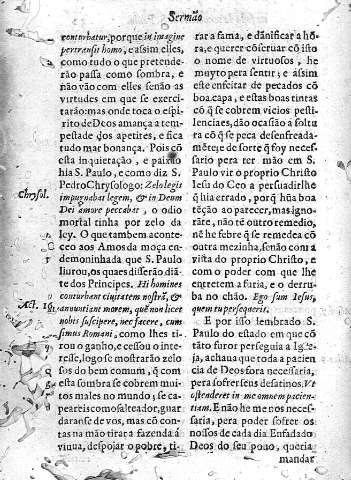 Sermão
conturbatur, porque in imagine
pertransit homo, e assim elles,
como tudo o que pretende-
rão passa como sombra, e
não vão com elles senão as
virtudes em que se exerci-
tarão: mas onde toca o espi-
rito de Deos amança a tem-
pestade dos apetites, e fica
tudo mar bonança. Pois cõ
esta inquietação, e paixão
hia S. Paulo, e como diz S.
Pedro Chrysologo: Zelo legis
Chrysol.
impugnabat legem, & in Deum
Dei amore peccabat, o odio
mortal tinha por zelo da
ley. O que tambem aconte-
ceo aos Amos da moça en-
demoninhada que S. Paulo
liurou, os quaes disserão diã-
te dos Principes. Hi homines
conturbant ciuitatem nostrã, &
Act. 16
annuntiant morem, quẽ non licet
nobis suscipere, nec facere, cum
simus Romani, como lhes ti-
rou o ganho, e cessou o inte-
resse, logo se mostrarão zelo
sos do bem comum, q̃ com
esta sombra se cobrem mui-
tos males no mundo, se ca-
peareis como salteador, guar
daranse de vos, mas cõ con-
tas na mão tirar a fazenda á
viuua, despojar o pobre, ti-
rar a fama, e danificar a hõ-
ra, e querer cõseruar cõ isto
o nome de virtuosos, he
muyto pera sentir; e assim
este enfeitar de pecados cõ
boa capa, e estas boas tintas
cõ q̃ se cobrem vicios pesti-
lenciaes, dão ocasião a soltu
ra cõ q̃ se peca desenfreada-
mẽte, de sorte q̃ foy neces-
sario pera ter mão em S.
Paulo vir o proprio Christo
Iesu do Ceo a persuadirlhe
q̃ hia errado, porq̃ hũa boa
tẽção ao parecer, mas igno-
rãte, não tẽ outro remedio,
nẽ he febre q̃ se remedea cõ
outra mezinha, senão com a
vista do proprio Christo, e
com o poder com que lhe
entretem a furia, e o derru-
ba no chão. Ego sum Iesus,
quem tu persequeris.
E por isso lembrado S.
Paulo do estado em que cõ
tãto furor perseguia a Igre-
ja, achaua que toda a pacien
cia de Deos fora necessaria,
pera sofrer seus desatinos. Vt
ostenderet in me omnem pacien-
tiam. E não he menos neces-
saria, pera poder sofrer os
nossos de cada dia. Enfadado
Deos do seu pouo, queria
mandar